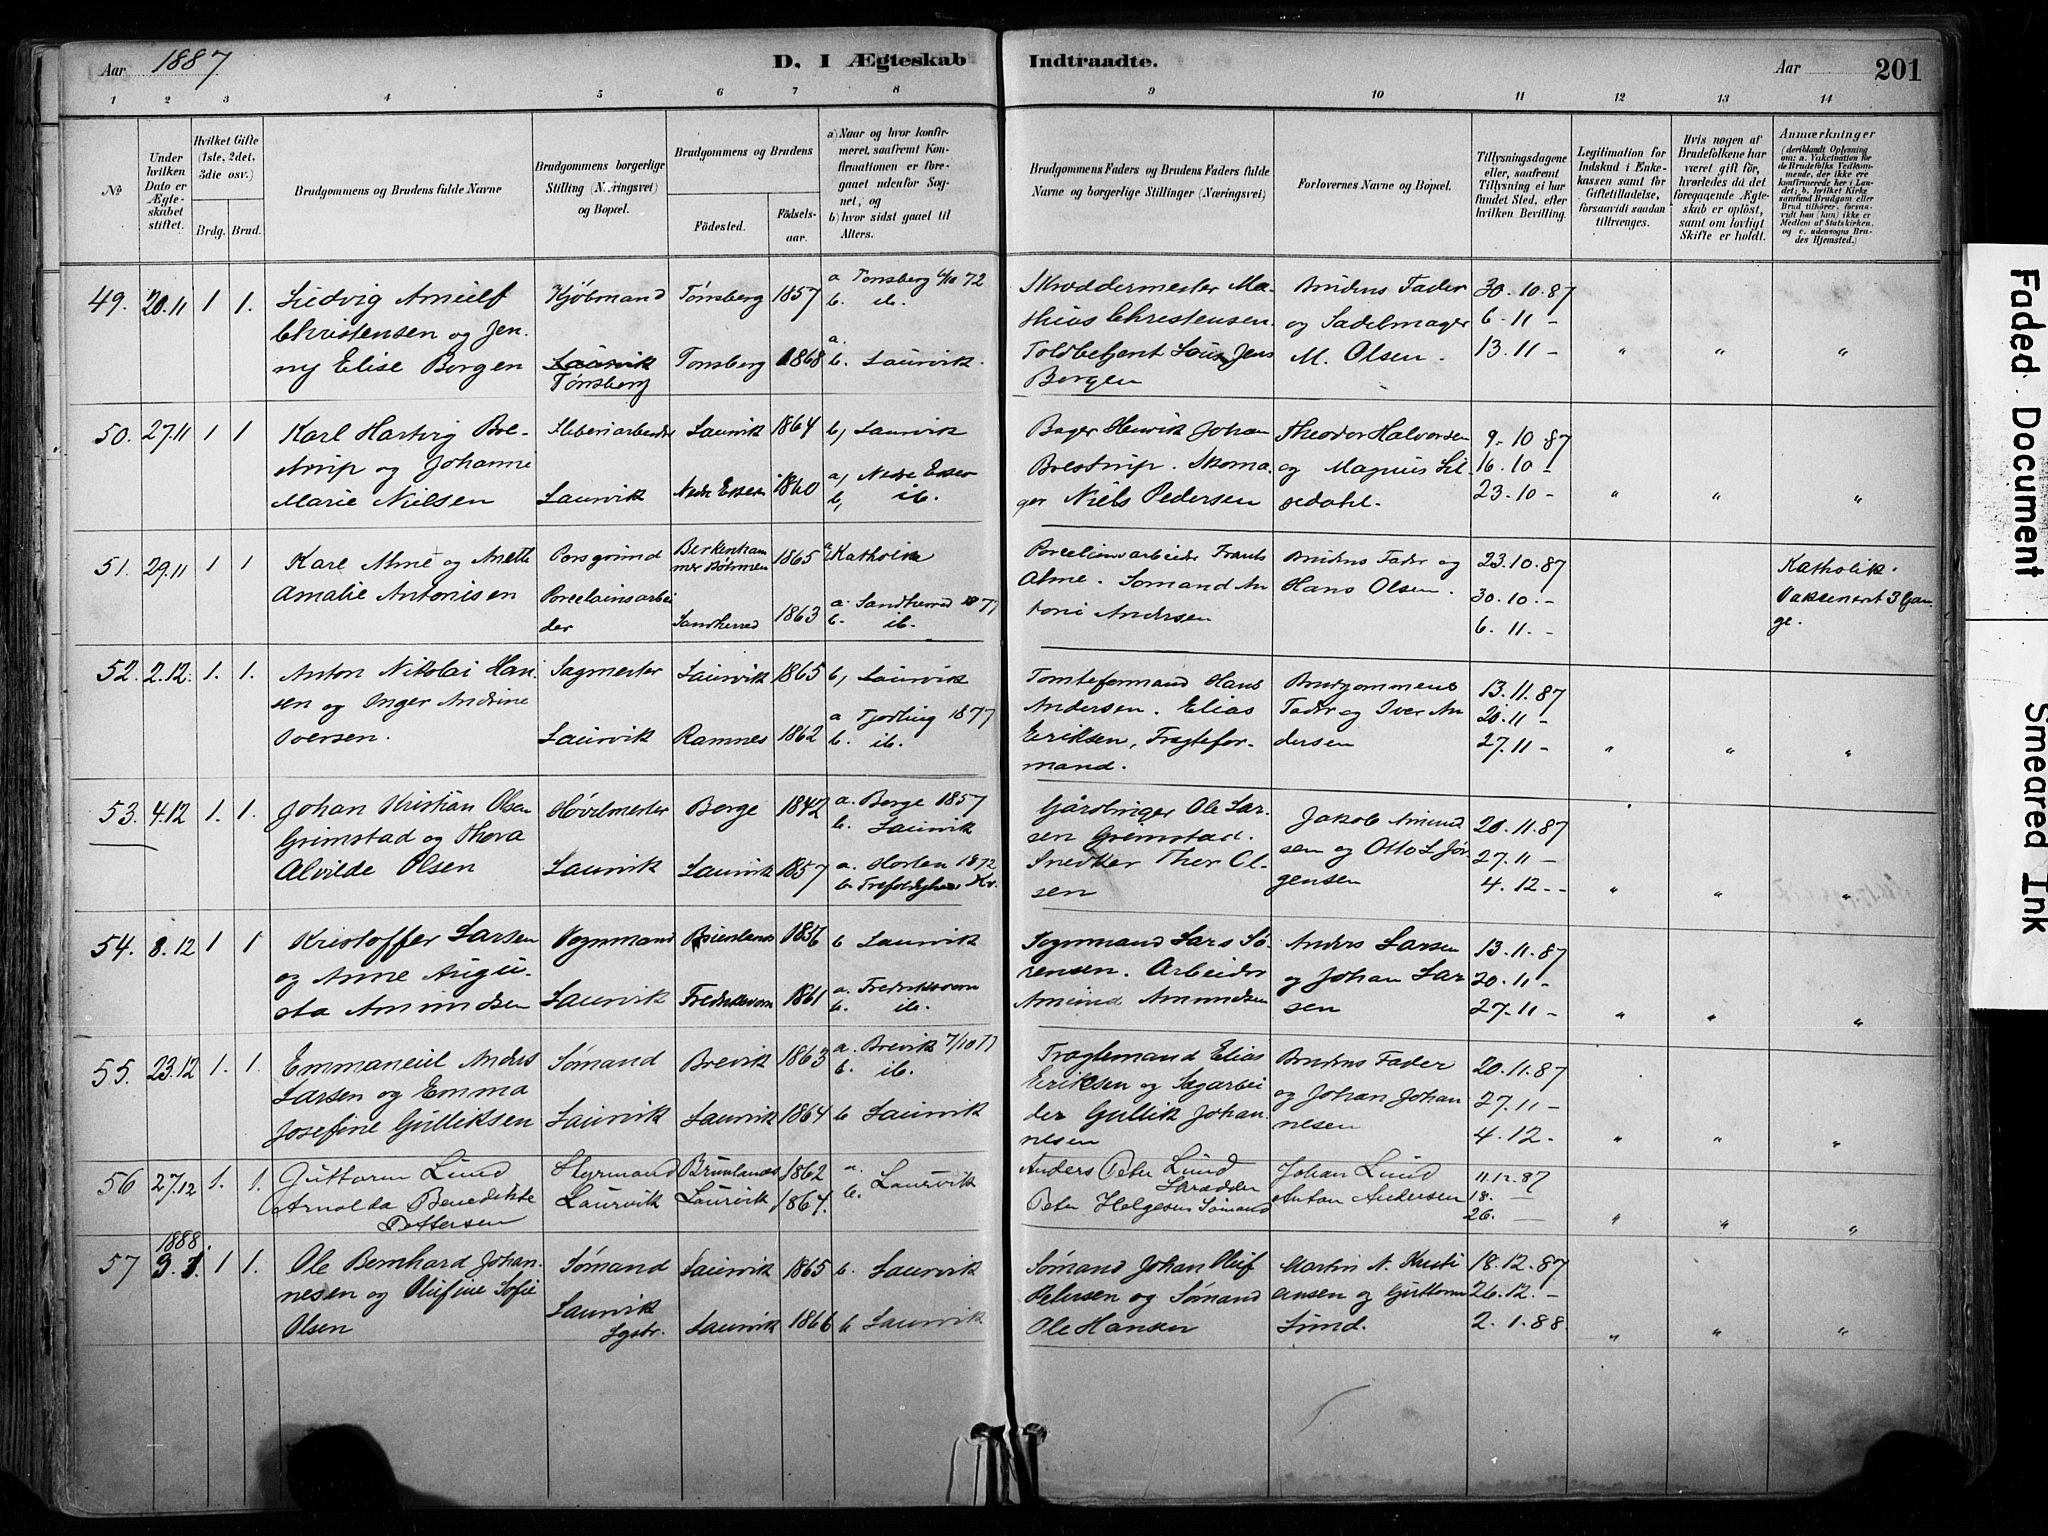 Aar 1887 D. I Ægteskab Indtraadte. Aar 201
1 2 3 4 5 6 7 8 9 10 11 12 13 14
No
Under hvilken Dato er Ægteskabet stiftet.
Hvilket Gifte (1ste, 2det, 3die osv.)
Brdg. Brud.
Brudgommens og Brudens fulde Navne
Brudgommens borgerlige Stilling (Næringsvei) og Bopæl.
Brudgommens og Brudens
Födested. Födselsaar.
a) Naar og hvor konfirmeret, saafremt Konfirmationen er foregaaet udenfor Sognet; og
b) hvor sidst gaaet til Alters.
Brudgommens Faders og Brudens Faders fulde Navne og borgerlige Stillinger (Næringsvei)
Forlovernes Navne og Bopæl.
Tillysningsdagene eller, saafremt Tillysning ei har fundet Sted, efter hvilken Bevilling.
Legitimation for Indskud i Enkekassen samt for Giftetilladelse, forsaavidt saadan tiltrænges.
Hvis nogen af Brudefolkene har været gift för, hvorledes da det foregaaende Ægteskab er oplöst, samt om lovligt Skifte er holdt.
Anmærkninger
(deriblandt Oplysning om: a. Vakcination for de Brudefolks Vedkommende, der ikke ere konfirmerede her i Landet; b. hvilket Kirkesamfund Brudgom eller Brud tilhörer, forsaavidt han (hun) ikke er Medlem af Statskirken, og c. udensogns Brudes Hjemsted.)
49. 20.11 1 1. Ludvig Christensen og Jenny Elise Borgen
Kjøbmand Laurvik Tønsberg
Tønsberg 1857 a Tønsberg 6/10 72 b. ib.
Tønsberg 1868 a. b. Laurvik.
Skræddermester Mathias Christensen. Toldbetjent Jens Borgen
Brudens Fader og Sadelmager M. Olsen.
30.10.87
6.11 –
13.11 – " " "
50. 27.11 1 1 Karl Hartvig Brestrup og Johanne Marie Nielsen
Laurvik
Laurvik 1864 b, Laurvik
Nedre Eker 1860 a, Nedre Eker b, ib.
Bager Henrik Johan Brestrup. Skomager Niels Pedersen
Theodor Halvorsen og Magnus Liljedahl.
9.10 87
16.10 –
23.10 – " " "
51. 29.11 1 1 Karl og Anette Amalie Antonisen
Porsgrund Porcelainsarbeider
Birkenhammer Bøhmen 1865 Katholik
Sandherred 1863 a. Sandherred 1877 b. ib.
Porcelainsarbeider Frants. Sømand Antoni Andersen
Brudens Fader og Hans Olsen.
23.10.87
30.10.–
6.11.–
Katholik. Vaksinert 3 Gange.
52. 2.12. 1. 1. Anton Nikolai Hansen og Inger Andrine Iversen.
Sagmester Laurvik
Laurvik 1865 b, Laurvik
Ramnes 1862 a Tjødling 1877 b. ib.
Tomteformand Hans Andersen. Elias Eriksen, Fragteformand.
Brudgommens Fader og Iver Andersen
13.11.87
20.11 –
27.11 – " " "
53. 4.12 1. 1. Johan Kristian Olsen Grimstad og Thora Alvilde Olsen
Høvlmester Laurvik
Borge 1842 a. Borge 1857 b. Laurvik
Laurvik 1857 a. Horten 1872 b. Trefoldighed. Kr.
Gårdbruger Ole Larsen Grimstad. Snedker Thor Olsen
Jakob Amundsen og Otto L Jørgensen
20.11.87
27.11 –
4.12 – " " "
54. 8.12 1 1 Kristoffer Larsen og Anne Augusta Amundsen
Vognmand Laurvik
Brunlanes 1856 b Laurvik
Fredriksværn 1861 a. Fredriksværn b. ib.
Vognmand Lars Sørensen. Arbeider Amund Amundsen
Anders Larsen og Johan Larsen
13.11.87
20.11 –
27.11 – " " "
55. 23.12 1. 1. Emmanuel Anders Larsen og Emma Josefine Gulliksen
Sømand Laurvik
Brevik 1863 a. Brevik 7/10 77 b. ib.
Laurvik 1864 b Laurvik
Elias Eriksen og Sagarbeider Gullik Johannesen
Brudens Fader og Johan Johannesen
20.11.87
27.11 –
4.12 – " " "
56 27.12 1. 1. Guttorm Lund Arnolda Benedikte Pettersen
Styrmand Laurvik
Brunlanes 1862
Laurvik 1864. a. b. Laurvik
Anders Peter Lund
Peter Helgesen Sømand
Johan Lund Anton Andersen
11.12.87
18. –
26. – " " "
57 1888 3.1. 1 1. Ole Bernhard Johannesen og Olufine Sofie Olsen
Sømand Laurvik Lgstr.
Laurvik 1865 b. Laurvik
Laurvik 1866 b Laurvik
Sømand Johan Oluf Petersen og Sømand Ole Hansen
Martin N. Kristiansen og Guttorm Lund.
18.12.87
26.12.–
2.1.88. " " "
Faded Document
Smeared Ink